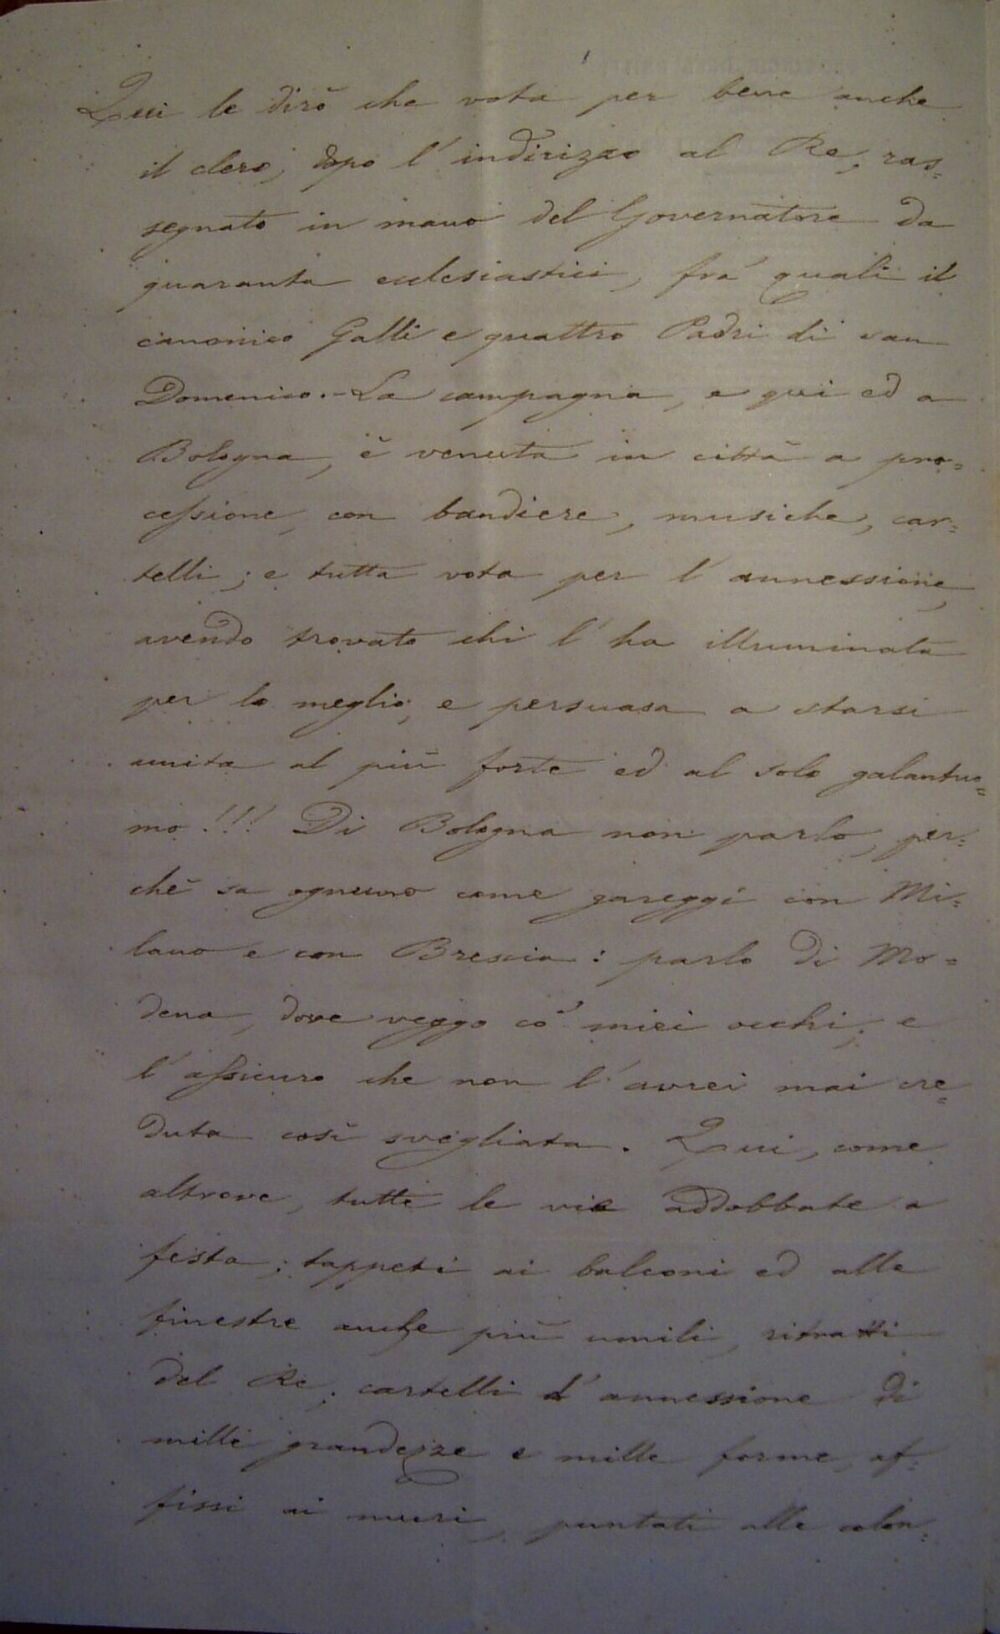 Qui le dirò che vota per bene anche
il clero, dopo l'indirizzo al Re, ras=
segnato in mano del Governatore da
quaranta ecclesiastici, fra' quali il
canonico Galli e quattro Padri di san
Domenico. - La campagna, e qui ed a
Bologna, è venuta in città a pro=
cessione, con bandiere, musiche, car=
telli; e tutta vota per l'annessione,
avendo trovato chi l'ha illuminata
per lo meglio, e persuasa a starsi
unita al più forte ed al solo galantuo=
mo!!! Di Bologna non parlo, per=
chè sa ognuno come gareggi con Mi=
lano e con Brescia: parlo di Mo=
dena, dove veggo co' miei occhi; e
l'assicuro che non l'avrei mai cre=
duta così svegliata. Qui, come
altrove, tutte le vie addobbate a
festa; tappeti ai balconi ed alle
finestre anche più umili, ritratti
del Re, cartelli d'annessione di
mille grandezze e mille forme, af=
fissi ai muri, puntati alle colon=